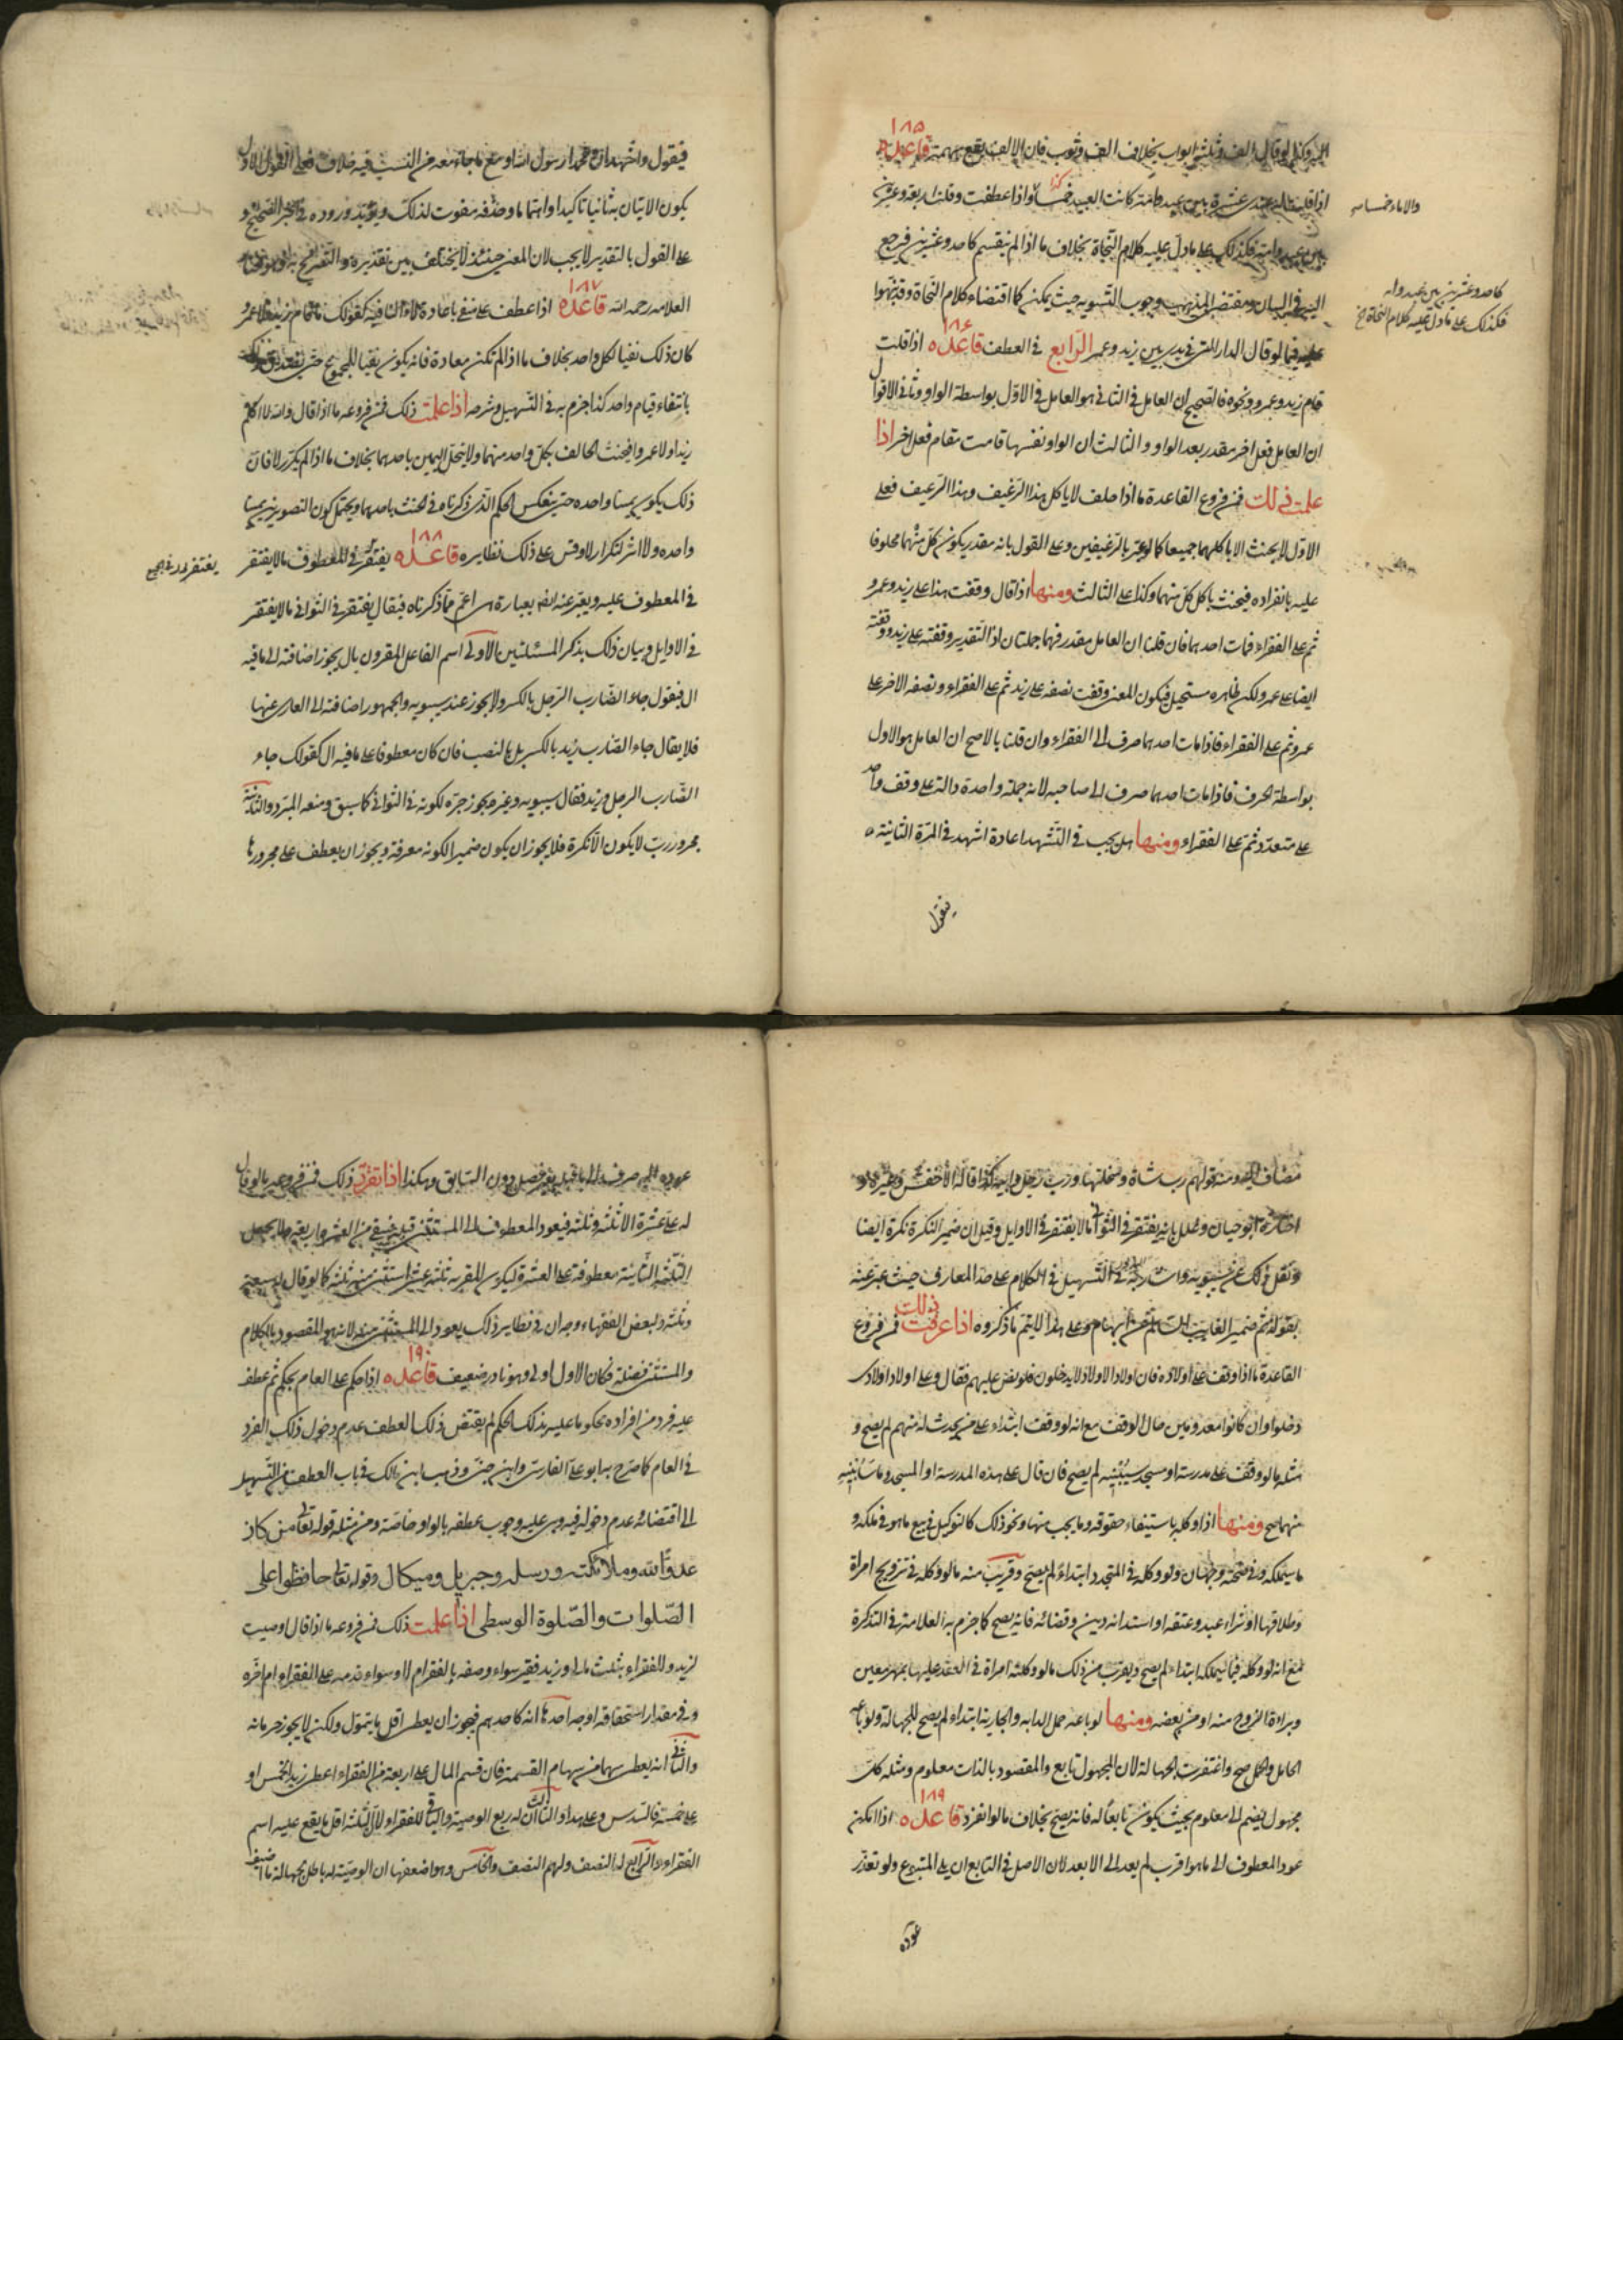 ١٨٥
اليه وكذا لو قال الف وثلثة اثواب بخلاف الف وثوب فان الالف يقع مبهمة قاعدة
اذا قلت ماله عندى عشرة بين عبد وامة كانت العبيد خمسا واذا عطفت وقلت اربعة وعشرين
والاماء خمسا
كذا
بين عبد وامة فكذلك على ما دل عليه كلام النحاة بخلاف ما اذا لم ينقسم كاحد وعشرين فيرجع
كاحد وعشرين بين عبد وامة
فكذلك على ما دل عليه كلام النحاة خ
اليه في البيان ومقتضى المذهب وجوب التسوية حيث يمكن كما اقتضاه كلام النحاة وقد نبهوا
١٨٦
عليه فيما لو قال الدار التى في يدى بين زيد وعمرو الرابع في العطف قاعده اذا قلت
قام زيد وعمرو ونحوه فالصحيح ان العامل في الثاني هو العامل في الاول بواسطة الواو وثاني الاقوال
ان العامل فعل اخر مقدر بعد الواو والثالث ان الواو نفسها قامت مقام فعل اخر اذا
علمت ذلك فمن فروع القاعدة ما اذا حلف لا ياكل هذا الرغيف وهذا الرغيف فعلى
الاول لا يحنث الا باكلهما جميعا كما لو عبر بالرغيفين وعلى القول بانه مقدر يكون كل منهما محلوفا
عليه بانفراده فيحنث باكل كل منهما وكذا على الثالث ومنها اذا قال وقفت هذا على زيد وعمرو
ثم على الفقراء فمات احدهما فان قلنا ان العامل مقدر فهما جملتان اذ التقدير وقفته على زيد ووقفته
ايضا على عمرو لكن ظاهره مستحيل فيكون المعنى وقفت نصفه على زيد ثم على الفقراء ونصفه الاخر على
عمرو ثم على الفقراء فاذا مات احدهما صرف الى الفقراء وان قلنا بالاصح ان العامل هو الاول
بواسطة الحرف فاذا مات احدهما صرف الى صاحبه لانه جملة واحدة دالة على وقف واحد
على متعدد ثم على الفقراء ومنها هل يجب في التشهد اعادة اشهد في المرة الثانية
فيقول
فيقول واشهد ان محمدا رسول الله او مع ما جاء معه من النسب فيه خلاف فعلى القول الاول
يكون الاتيان به ثانيا تاكيدا واهتماما وحذفه مفوت لذلك ويؤيد وروده في الخبر الصحيح و
على القول بالتقدير لا يجب لان المعنى حينئذ لا يختلف بين تقديره والتصريح به
١٨٧
العلامه رحمه الله قاعدة اذا عطف على منفى باعادة لا النافية كقولك ما قام زيد ولا عمرو
كان ذلك نفيا لكل واحد بخلاف ما اذا لم تكن معادة فانه يكون نفيا للمجموع حتى يصدق ذلك
بانتفاء قيام واحد كذا جزم به في التسهيل وشرحه اذا علمت ذلك فمن فروعه ما اذا قال والله لا اكلم
زيدا ولا عمروا فيحنث الحالف بكل واحد منهما ولا ينحل اليمين باحدهما بخلاف ما اذا لم يكرر لا فان
ذلك يكون يمينا واحده حتى ينعكس الحكم الذي ذكرناه في الحنث باحدهما ويحتمل كون الصورتين يمينا
١٨٨
واحده ولا اثر لتكرار لا وقس على ذلك نظايره قاعده يغتفر في المعطوف ما لا يغتفر
في المعطوف عليه ويعبر عنه ايضا بعبارة هى اعم مما ذكرناه فيقال يغتفر في الثواني ما لا يغتفر
في الاوايل وبيان ذلك بذكر المسئلتين الاولى اسم الفاعل المقرون بال يجوز اضافته الى ما فيه
ال فنقول جاء الضارب الرجل بالكسر ولا يجوز عند سيبويه والجمهور اضافته الى العارى عنها
فلا يقال جاء الضارب زيد بالكسر بل بالنصب فان كان معطوفا على ما فيه ال كقولك جاء
الضارب الرجل وزيد فقال سيبويه وغيره يجوز جره لكونه في الثواني كما سبق ومنعه المبرد والثانية
مجرور رب لا يكون الا نكرة فلا يجوز ان يكون ضميرا لكونه معرفة ويجوز ان يعطف على مجرورها
مضاف اليه ومنه قولهم رب شاة وسخلتها ورب رجل واخيه كذا قاله الاخفش وغيره و
اختاره ابو حيان وعلل بانه يغتفر في الثواني ما لا يغتفر في الاوايل وقيل ان ضمير النكرة نكرة ايضا
ونقل ذلك عن سيبويه واشار اليه في التسهيل في الكلام على حد المعارف حيث عبر عنه
ذلك
بقوله ثم ضمير الغايب السالم عن ابهام وعلى هذا لا يتم ما ذكروه اذا عرفت فمن فروع
القاعدة ما اذا وقف على اولاده فان اولاد الاولاد لا يدخلون فلو نص عليهم فقال وعلى اولاد اولادى
دخلوا وان كانوا معدومين حال الوقف مع انه لو وقف ابتداء على من يحدث له منهم لم يصح و
مثله ما لو وقف على مدرسة او مسجد سيبنيه لم يصح فان قال على هذه المدرسة او المسجد وما سابنيه
منهما صح ومنها اذا وكله باستيفاء حقوقه وما يجب منها ونحو ذلك كالتوكيل في بيع ما هو في ملكه و
ما سيملكه وفي صحته وجهان ولو وكله في المتجدد ابتداء لم يصح وقريب منه ما لو وكله في تزويج امراة
وطلاقها او شراء عبد وعتقه او استدانه دين وقضائه فانه يصح كما جزم به العلامة في التذكرة
مع انه لو وكله فيما سيملكه ابتداء لم يصح ويقرب من ذلك ما لو وكلته امراة في العقد عليها بمهر معين
وبراءة الزوج منه او من بعضه ومنها لو باعه حمل الدابه والجارية ابتداء لم يصح للجهالة ولو باع
الحامل والحمل صح واغتفرت الجهالة لان المجهول تابع والمقصود بالذات معلوم ومثله كل
١٨٩
مجهول يضم الى معلوم بحيث يكون تابعا له فانه يصح بخلاف ما لو انفرد قاعده اذا امكن
عود المعطوف الى ما هو اقرب لم يعد الى الابعد لان الاصل في التابع ان يلى المتبوع ولو تعذر
عوده
عوده اليه صرف الى ما قبله بغير فصل دون السابق وهكذا اذا تقرر ذلك فمن فروعه ما لو قال
له على عشرة الا ثلثة وثلثة فيعود المعطوف الى المستثنى قبله فيبقى من العشرة اربعة ولا يجعل
الثلثة الثانية معطوفة على العشرة ليكون المقر به ثلثة عشر استثنى منه ثلثة كما لو قال له سبعة
وثلثة ولبعض الفقهاء وجه ان في نظاير ذلك يعود الى المستثنى منه لانه هو المقصود بالكلام
١٩٠
والمستثنى فضلة فكان الاول اولى وهو نادر ضعيف قاعده اذا حكم على العام بحكم ثم عطف
عليه فرد من افراده محكوما عليه بذلك الحكم لم يقتض ذلك العطف عدم دخول ذلك الفرد
في العام كما صرح به ابو على الفارسى وابن جنى وذهب ابن مالك في باب العطف من التسهيل
الى اقتضائه عدم دخوله فيه وبنى عليه وجوب عطفه بالواو خاصة ومن مثله قوله تعالى من كان
عدوا لله وملائكته ورسله وجبريل وميكال وقوله تعالى حافظوا على
الصلوات والصلوة الوسطى اذا علمت ذلك فمن فروعه ما اذا قال اوصيت
لزيد وللفقراء بثلث مالى وزيد فقير سواء وصفه بالفقر ام لا وسواء قدمه على الفقراء ام اخره
وفي مقدار استحقاقه اوجه احدها انه كاحدهم فيجوز ان يعطى اقل ما يتمول ولكن لا يجوز حرمانه
والثاني انه يعطى سهما من سهام القسمة فان قسم المال على اربعة من الفقراء اعطى زيد الخمس او
على خمسة فالسدس وعلى هذا والثالث ان له ربع الوصية والباقي للفقراء لان الثلثة اقل ما يقع عليه اسم
الفقراء والرابع له النصف ولهم النصف والخامس وهو اضعفها ان الوصية له باطلة لجهالة ما اضيف